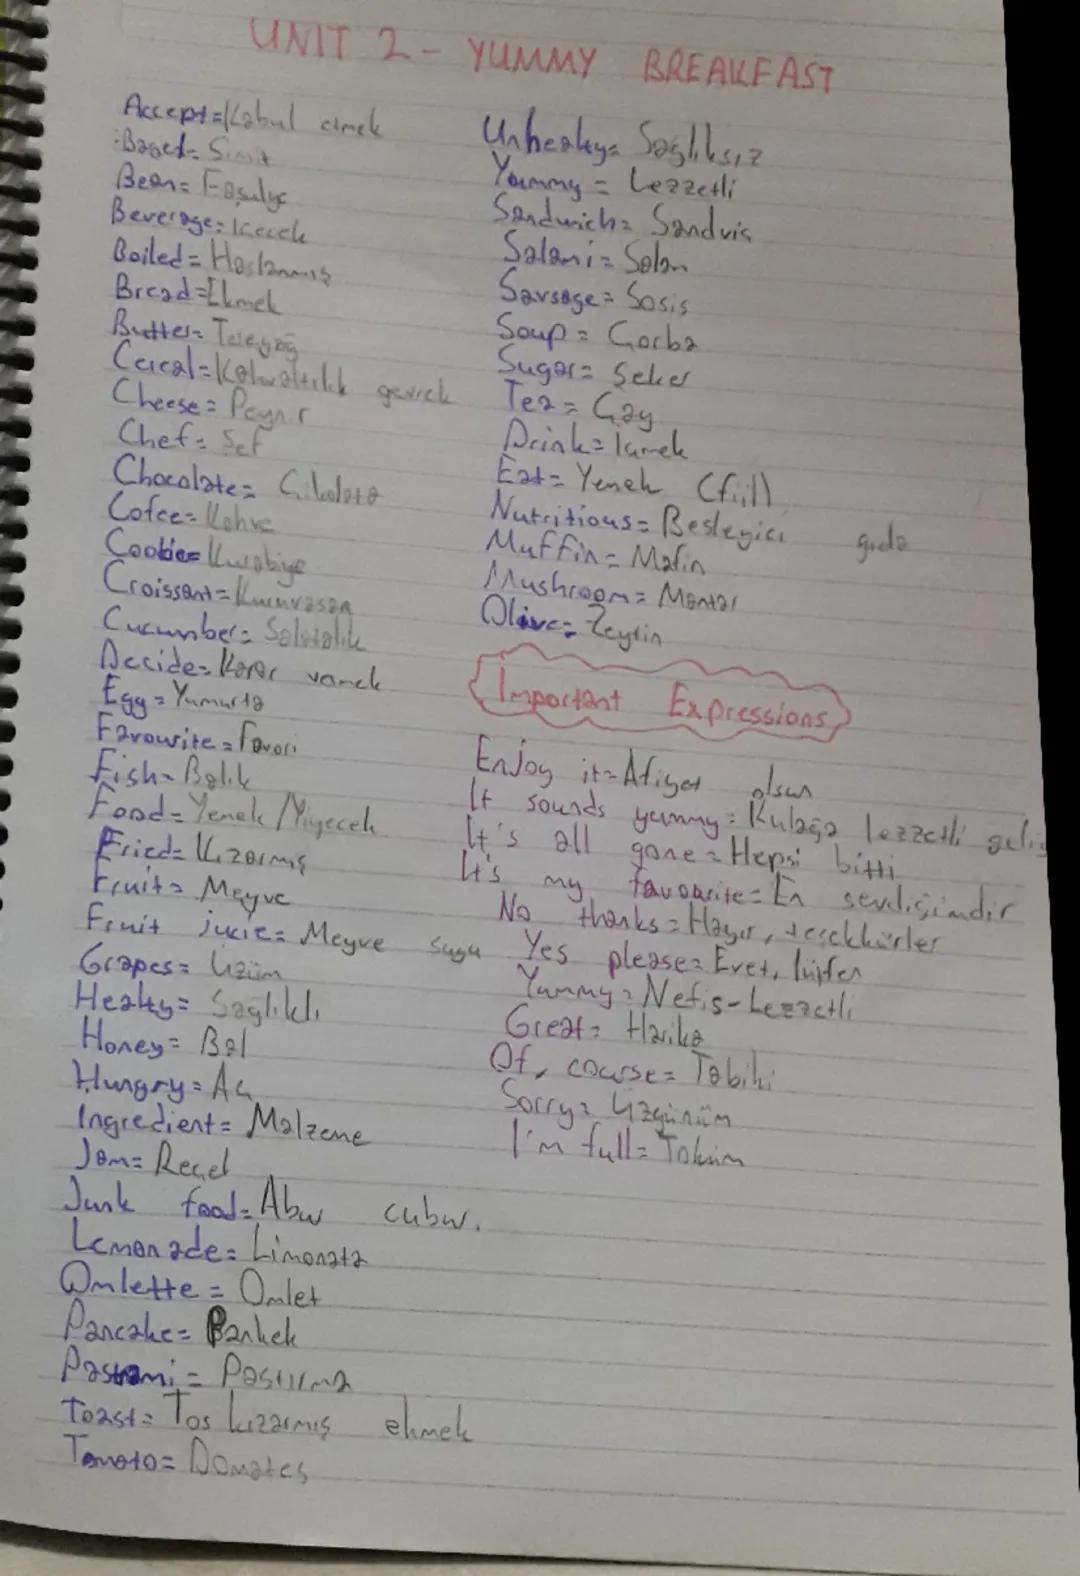 UNIT 2 - YUMMY BREAKFAST
Accept = Kabul etmek
Bagel = Simit
Bean = Fasulye
Beverage = İcecek
Boiled = Haşlanmış
Bread = Ekmek
Butter = Tereyağ
Cereal = Kahvaltılık gevrek
Cheese = Peynir
Chef = Şef
Chocolate = Çikolata
Cofee = Kahve
Cookie = Kurabiye
Croissant = Kuruvasan
Cucumber = Salatalık
Decide = Karar vamek
Egg = Yumurta
Favourite = favori
Fish = Balık
Food = Yemek / Yiyecek
Fried = Kızarmış
Fruit = Meyve
Fruit jucie = Meyve suyu
Grapes = Üzüm
Healty = Sağlıklı
Honey = Bal
Hungry = Aç
Ingredient = Malzeme
Jam = Reçel
Junk food = Abur cubur.
Lemonade = Limonata
Omlette = Omlet
Pancake = Pankek
Pastrami = Pastırma
Toast = Tos kızarmış ekmek
Tomato = Domates
Unhealty = Sağlıksız
Yummy = Lezzetli
Sandwich = Sandviş
Salami = Salam
Sausage = Sosis
Soup = Çorba
Sugar = Şeker
Tea = Çay
Drink = İçmek
Eat = Yemek (fiil)
Nutritious = Besleyici gıda
Muffin = Mafin
Mushroom = Mantar
Olive = Zeytin
Important Expressions
Enjoy it = Afiyet olsun
It sounds yummy = Kulağa lezzetli geliy
It's all gone = Hepsi bitti
It's my favourite = En sevdiğimdir
No thanks = Hayır, teşekkürler
Yes please = Evet, lütfen
Yummy = Nefis - Lezzetli
Great = Harika
Of, course = Tabiki
Sorry = Üzgünüm
I'm full = Tokum